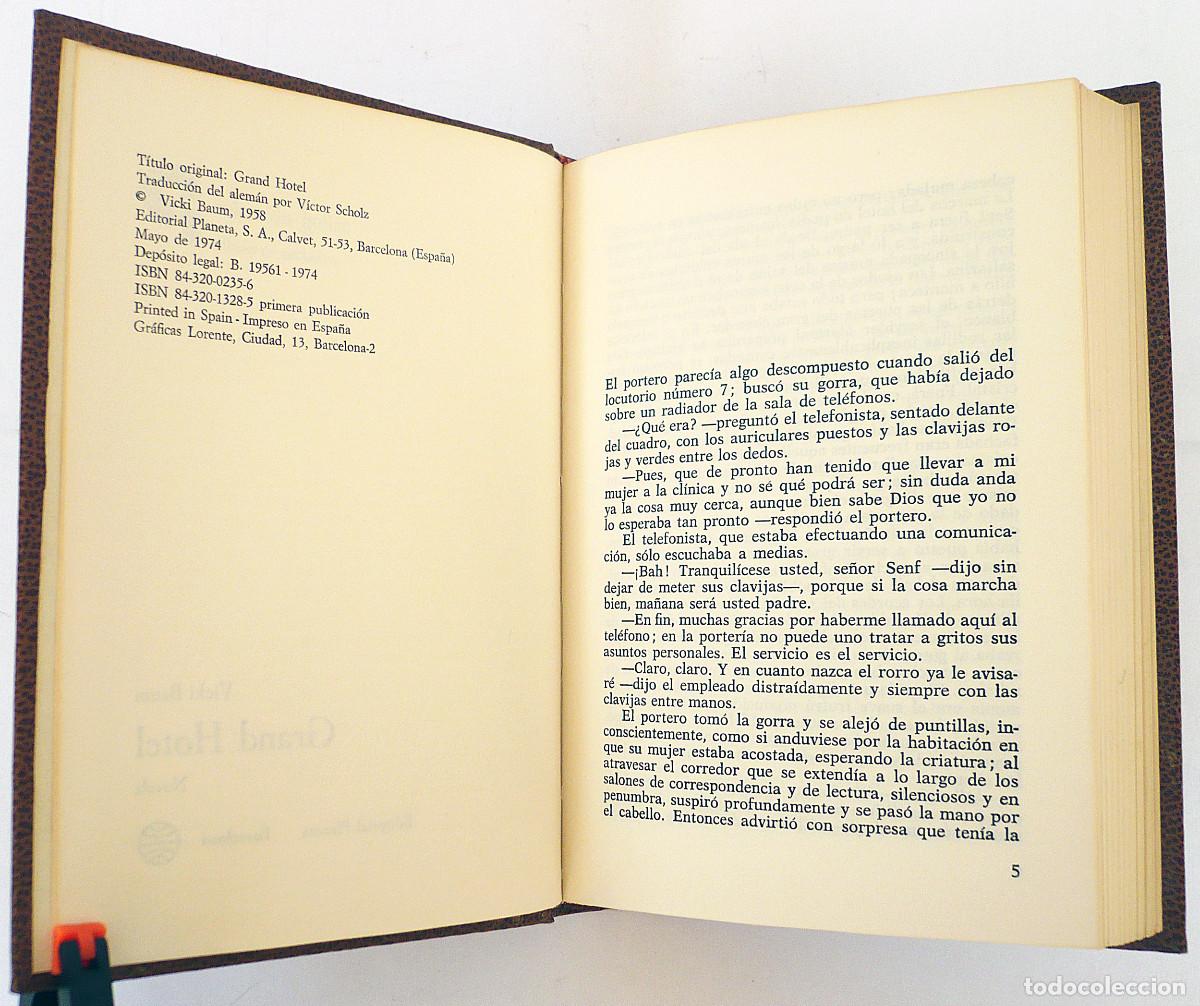 Título original: Grand Hotel
Traducción del alemán por Víctor Scholz
© Vicki Baum, 1958
Editorial Planeta, S. A., Calvet, 51-53, Barcelona (España)
Mayo de 1974
Depósito legal: B. 19561 - 1974
ISBN 84-320-0235-6
ISBN 84-320-1328-5 primera publicación
Printed in Spain - Impreso en España
Gráficas Lorente, Ciudad, 13, Barcelona-2
Vicki Baum
Grand Hotel
Novela
Editorial Planeta Barcelona
El portero parecía algo descompuesto cuando salió del
locutorio número 7; buscó su gorra, que había dejado
sobre un radiador de la sala de teléfonos.
—¿Qué era? —preguntó el telefonista, sentado delante
del cuadro, con los auriculares puestos y las clavijas ro-
jas y verdes entre los dedos.
—Pues, que de pronto han tenido que llevar a mi
mujer a la clínica y no sé qué podrá ser; sin duda anda
ya la cosa muy cerca, aunque bien sabe Dios que yo no
lo esperaba tan pronto —respondió el portero.
El telefonista, que estaba efectuando una comunica-
ción, sólo escuchaba a medias.
—¡Bah! Tranquilícese usted, señor Senf —dijo sin
dejar de meter sus clavijas—, porque si la cosa marcha
bien, mañana será usted padre.
—En fin, muchas gracias por haberme llamado aquí al
teléfono; en la portería no puede uno tratar a gritos sus
asuntos personales. El servicio es el servicio.
—Claro, claro. Y en cuanto nazca el rorro ya le avisa-
ré —dijo el empleado distraídamente y siempre con las
clavijas entre manos.
El portero tomó la gorra y se alejó de puntillas, in-
conscientemente, como si anduviese por la habitación en
que su mujer estaba acostada, esperando la criatura; al
atravesar el corredor que se extendía a lo largo de los
salones de correspondencia y de lectura, silenciosos y en
penumbra, suspiró profundamente y se pasó la mano por
el cabello. Entonces advirtió con sorpresa que tenía la
5
todocoleccion